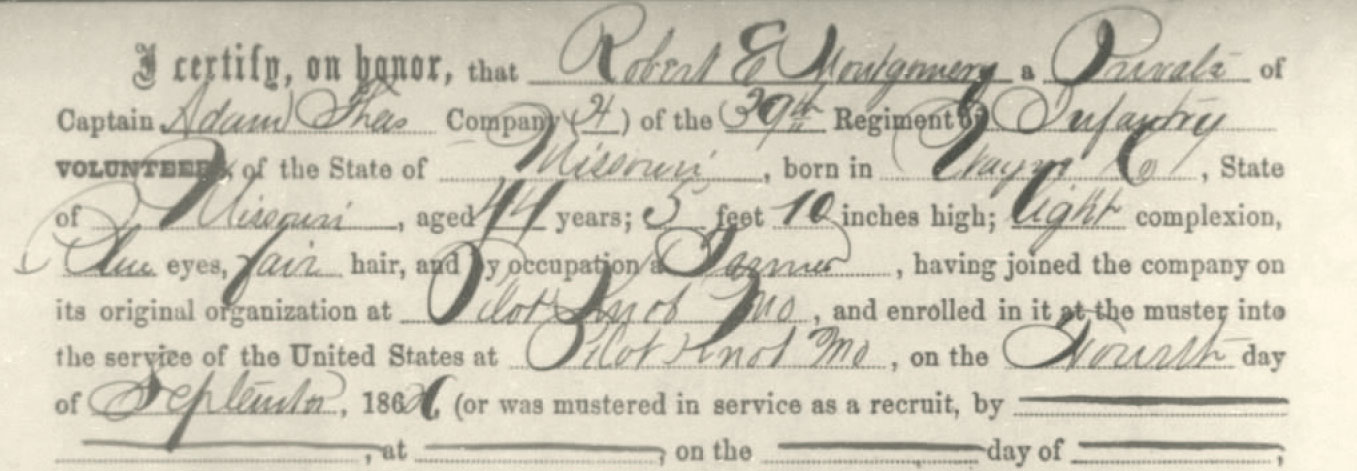 I certify, on honor, that Robert E Montgomery a Private of
Captain Adam Theis Company (H) of the (39th Regiment of Infantry
VOLUNTEERS of the State of Missouri, born in Wayne Co, State
of Missouri, aged 44 years; 5 feet 10 inches high; light complexion,
Blue eyes, fair hair, and by occupation a Farmer, having joined the company on
its original organization at Pilot Knob Mo, and enrolled in it at the muster into
the service of the United States at Pilot Knob Mo, on the Fourth day
of September, 186 (or was mustered in service as a recruit, by
, at , on the day of ;